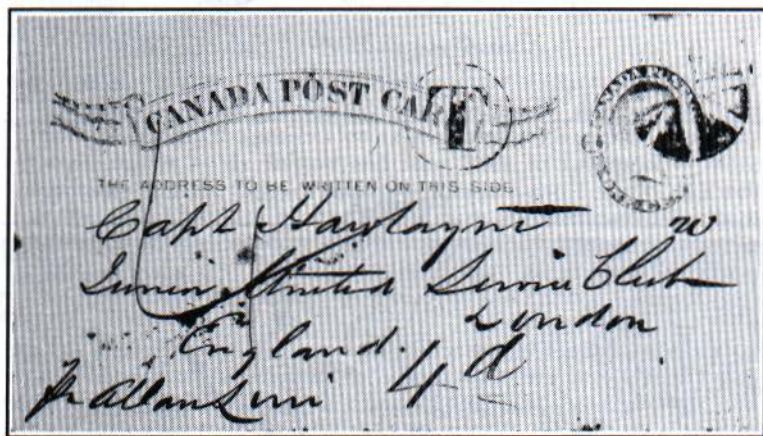 CANADA POST CARD
T
THE ADDRESS TO BE WRITTEN ON THIS SIDE
Capt
Junior United Service Club
London
England.
4d
pr Allan Line